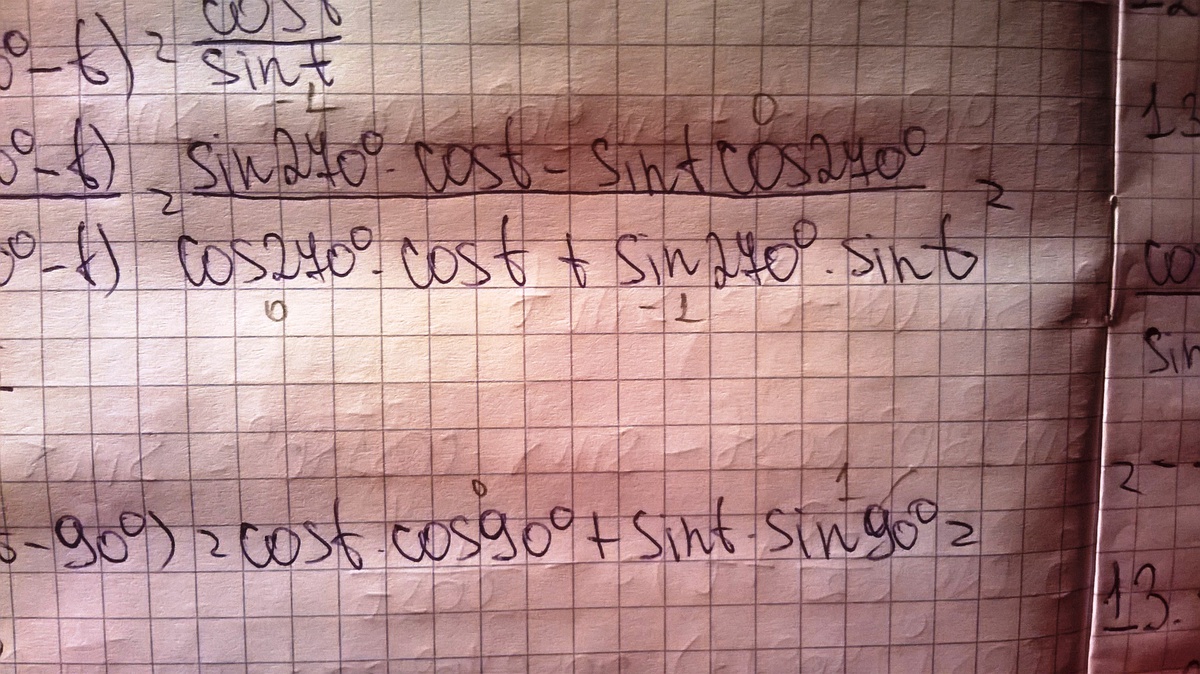 0° - t) = cos t
sin t
-1 0
0° - t) = sin 270° · cos t - sin t cos 270° =
0° - t) cos 270° · cos t + sin 270° · sin t
0 -1
0 1
t - 90°) = cos t · cos 90° + sin t · sin 90° =
13
cos
sin
= -
13.